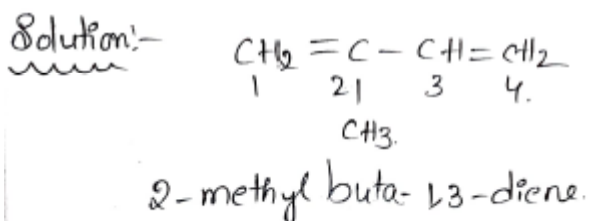 Solution:-
CH2 = C - CH = CH2
1 2| 3 4.
CH3.
2-methyl buta- 1,3-diene.